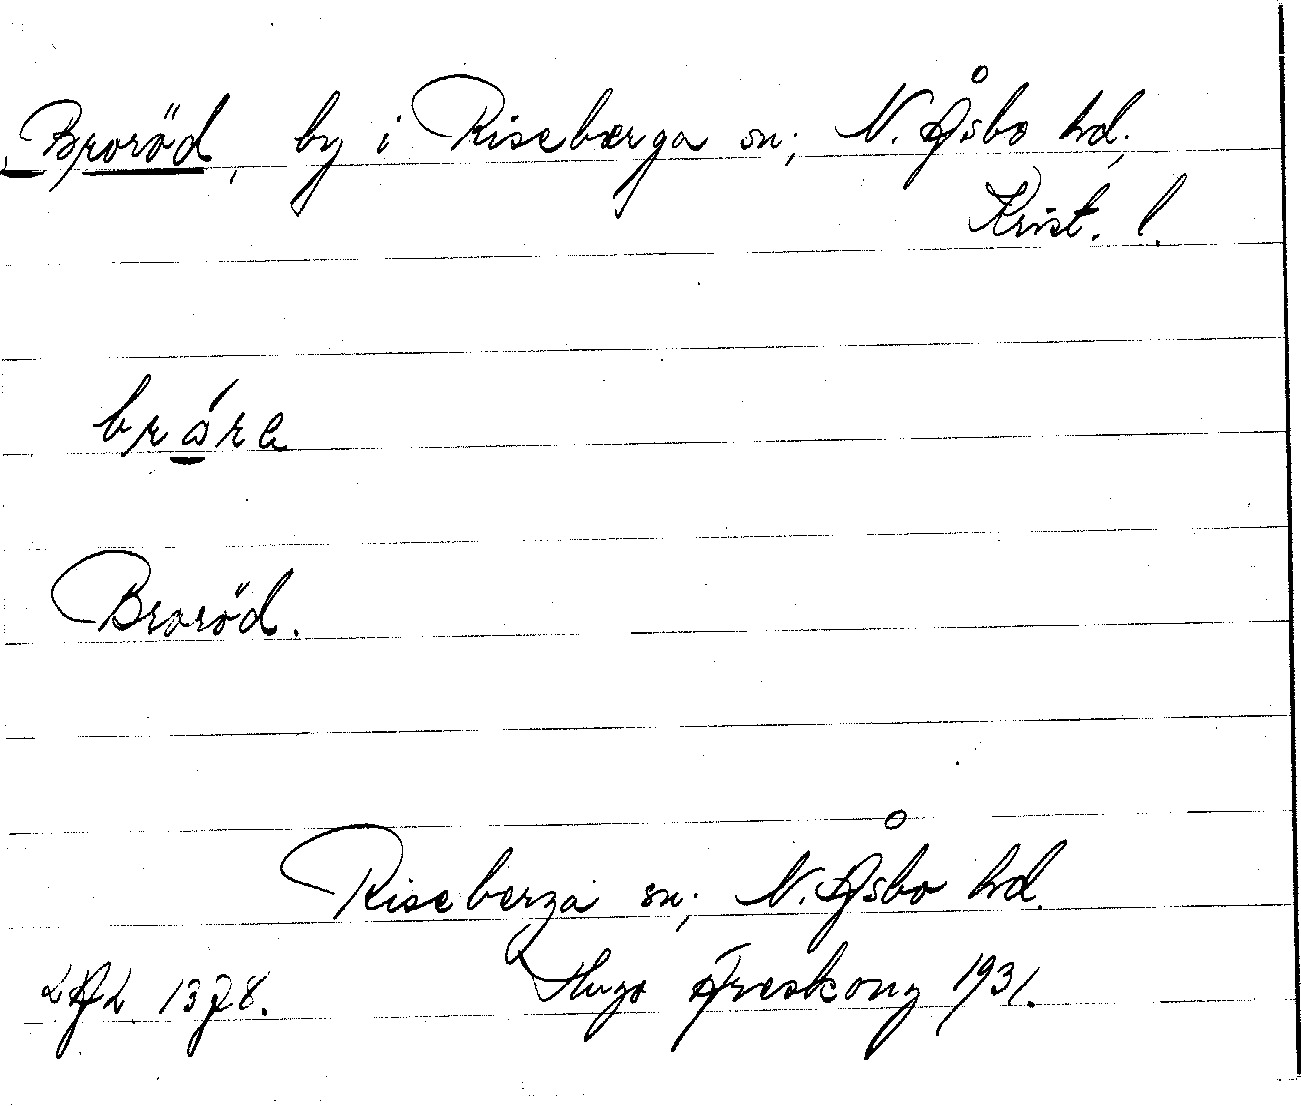 Broröd, by i Riseberga sn; N. Åsbo hd;
Krist. l.
bråra
Broröd.
Riseberga sn; N. Åsbo hd.
Hugo Areskoug 1931.